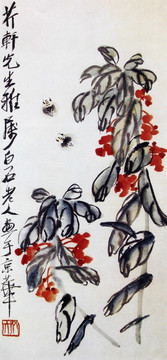 芥軒先生雅屬白石老人畫于京華